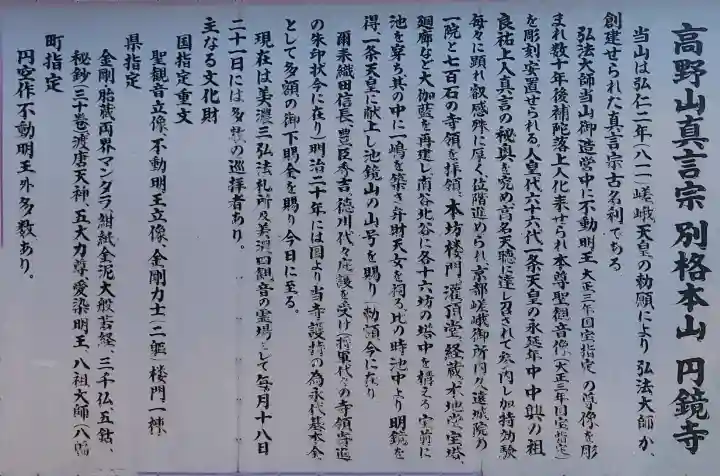 高野山真言宗 別格本山 円鏡寺
当山は弘仁二年(八一一)嵯峨天皇の勅願により 弘法大師が、
創建せられた真言宗古名刹である
弘法大師当山御造営中に不動明王(大正三年国宝指定)の尊像を彫
まれ数十年後補陀落上人化来せられ本尊聖観音像(大正三年国宝指定)
を彫刻安置せられる、人皇代六十六代一条天皇の永延年中 中興の祖
良祐上人真言の秘奥を究め、高名天聴に達し召されて参内し加持効験
毎々に顕れ叡感殊に厚く位階進められ、京都嵯峨御所内久遠城院の
一院と七百石の寺領を拝領、本坊楼門、灌頂堂、経蔵、本地堂、宝塔
廻廊など大伽藍を再建し南谷北谷に各十六坊の塔中を構える 堂前に
池を穿ち其の中に一嶋を築き弁財天女を祠る、比の時池中より明鏡を
得、一条天皇に献上し池鏡山の山号を賜り(勅額今に在り)
爾来織田信長、豊臣秀吉、徳川代々庇護を受け(将軍代々の寺領寄進
の朱印状今に在り)明治二十年には国より当寺護持の為永代基本金
として多額の御下賜金を賜り今日に至る。
現在は美濃三弘法札所及美濃四観音の霊場として毎月十八日
二十一日には多数の巡拝者あり。
主なる文化財
国指定重文
聖観音立像、不動明王立像、金剛力士(二軀)楼門一棟
県指定
金剛、胎蔵両界マンダラ、紺紙金泥大般若経、三千仏、五鈷、
秘鈔(三十巻)渡唐天神、五大力尊、愛染明王、八祖大師(八幅
町指定
円空作不動明王外多数あり。